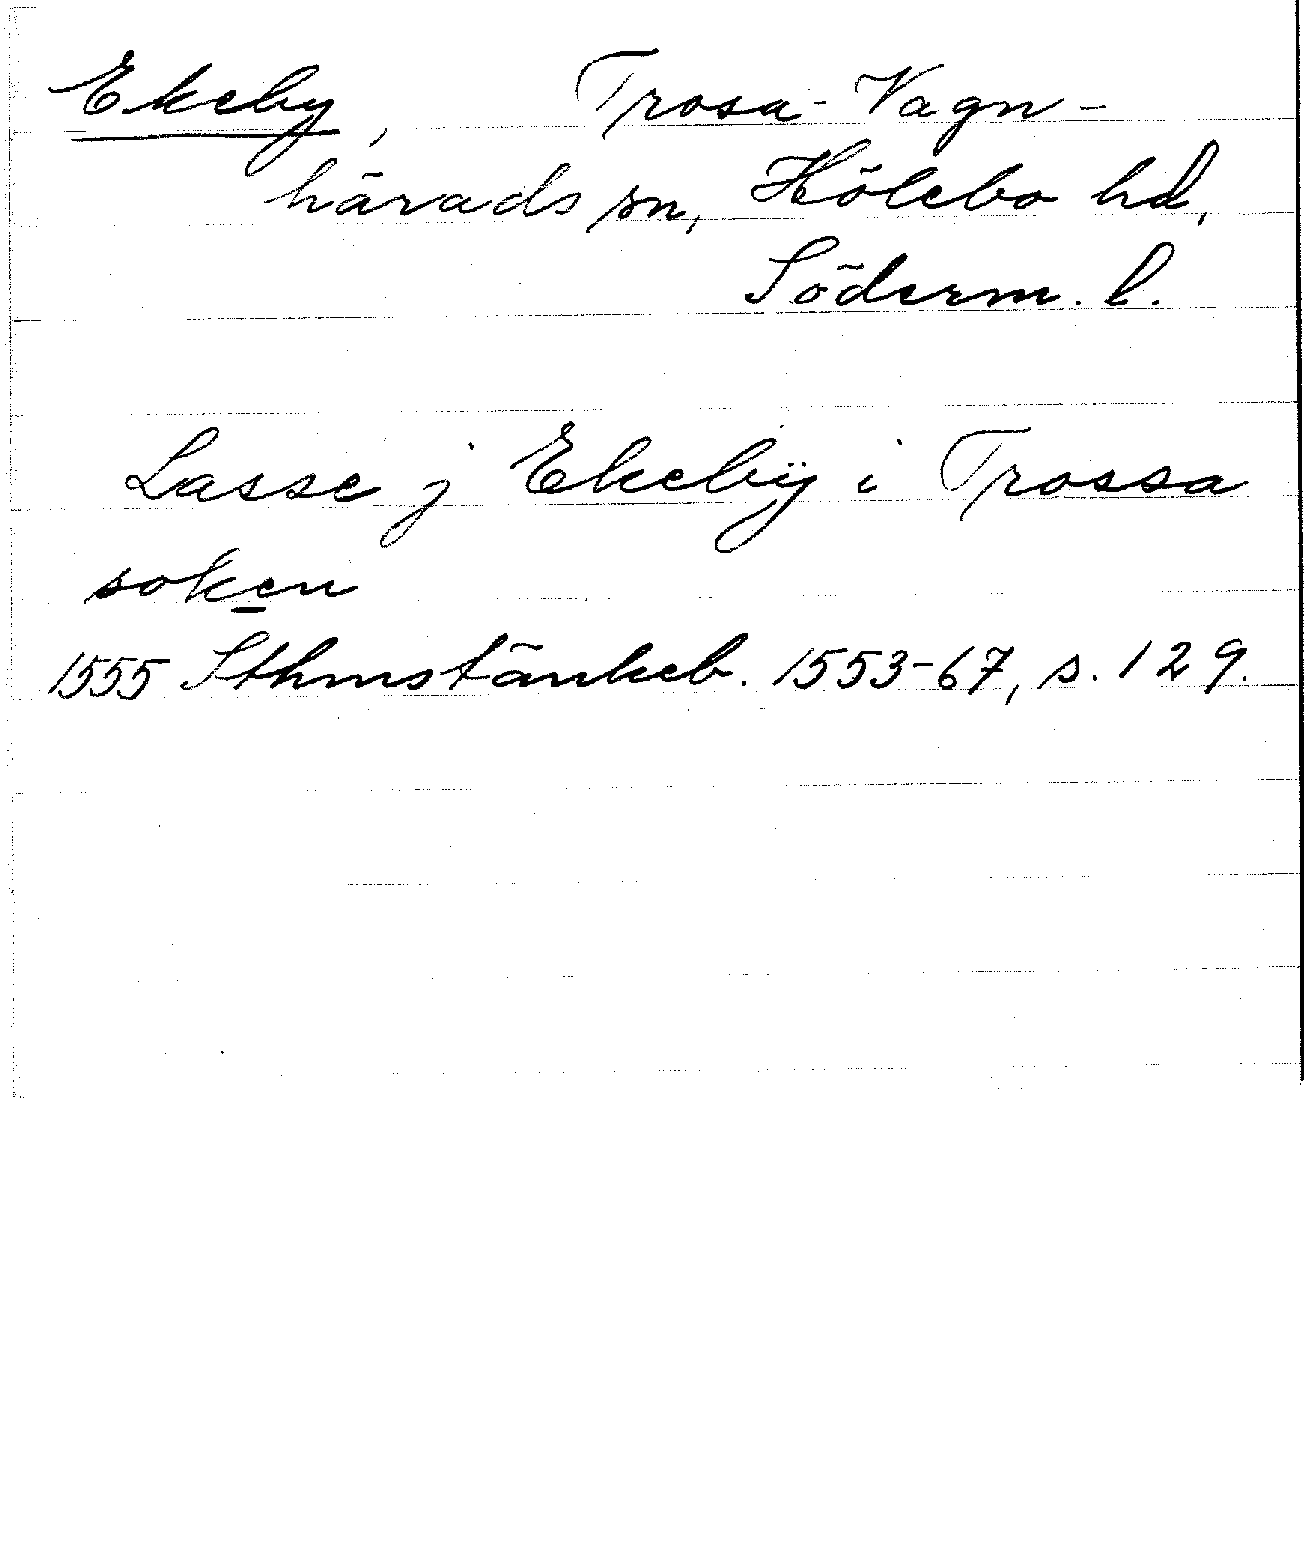 Ekeby, Trosa-Vagn-
härads sn, Hölebo hd,
Söderm. l.
Lasse j Ekebÿ i Trossa
soken
1555 Sthmstänkeb. 1553-67, s. 129.